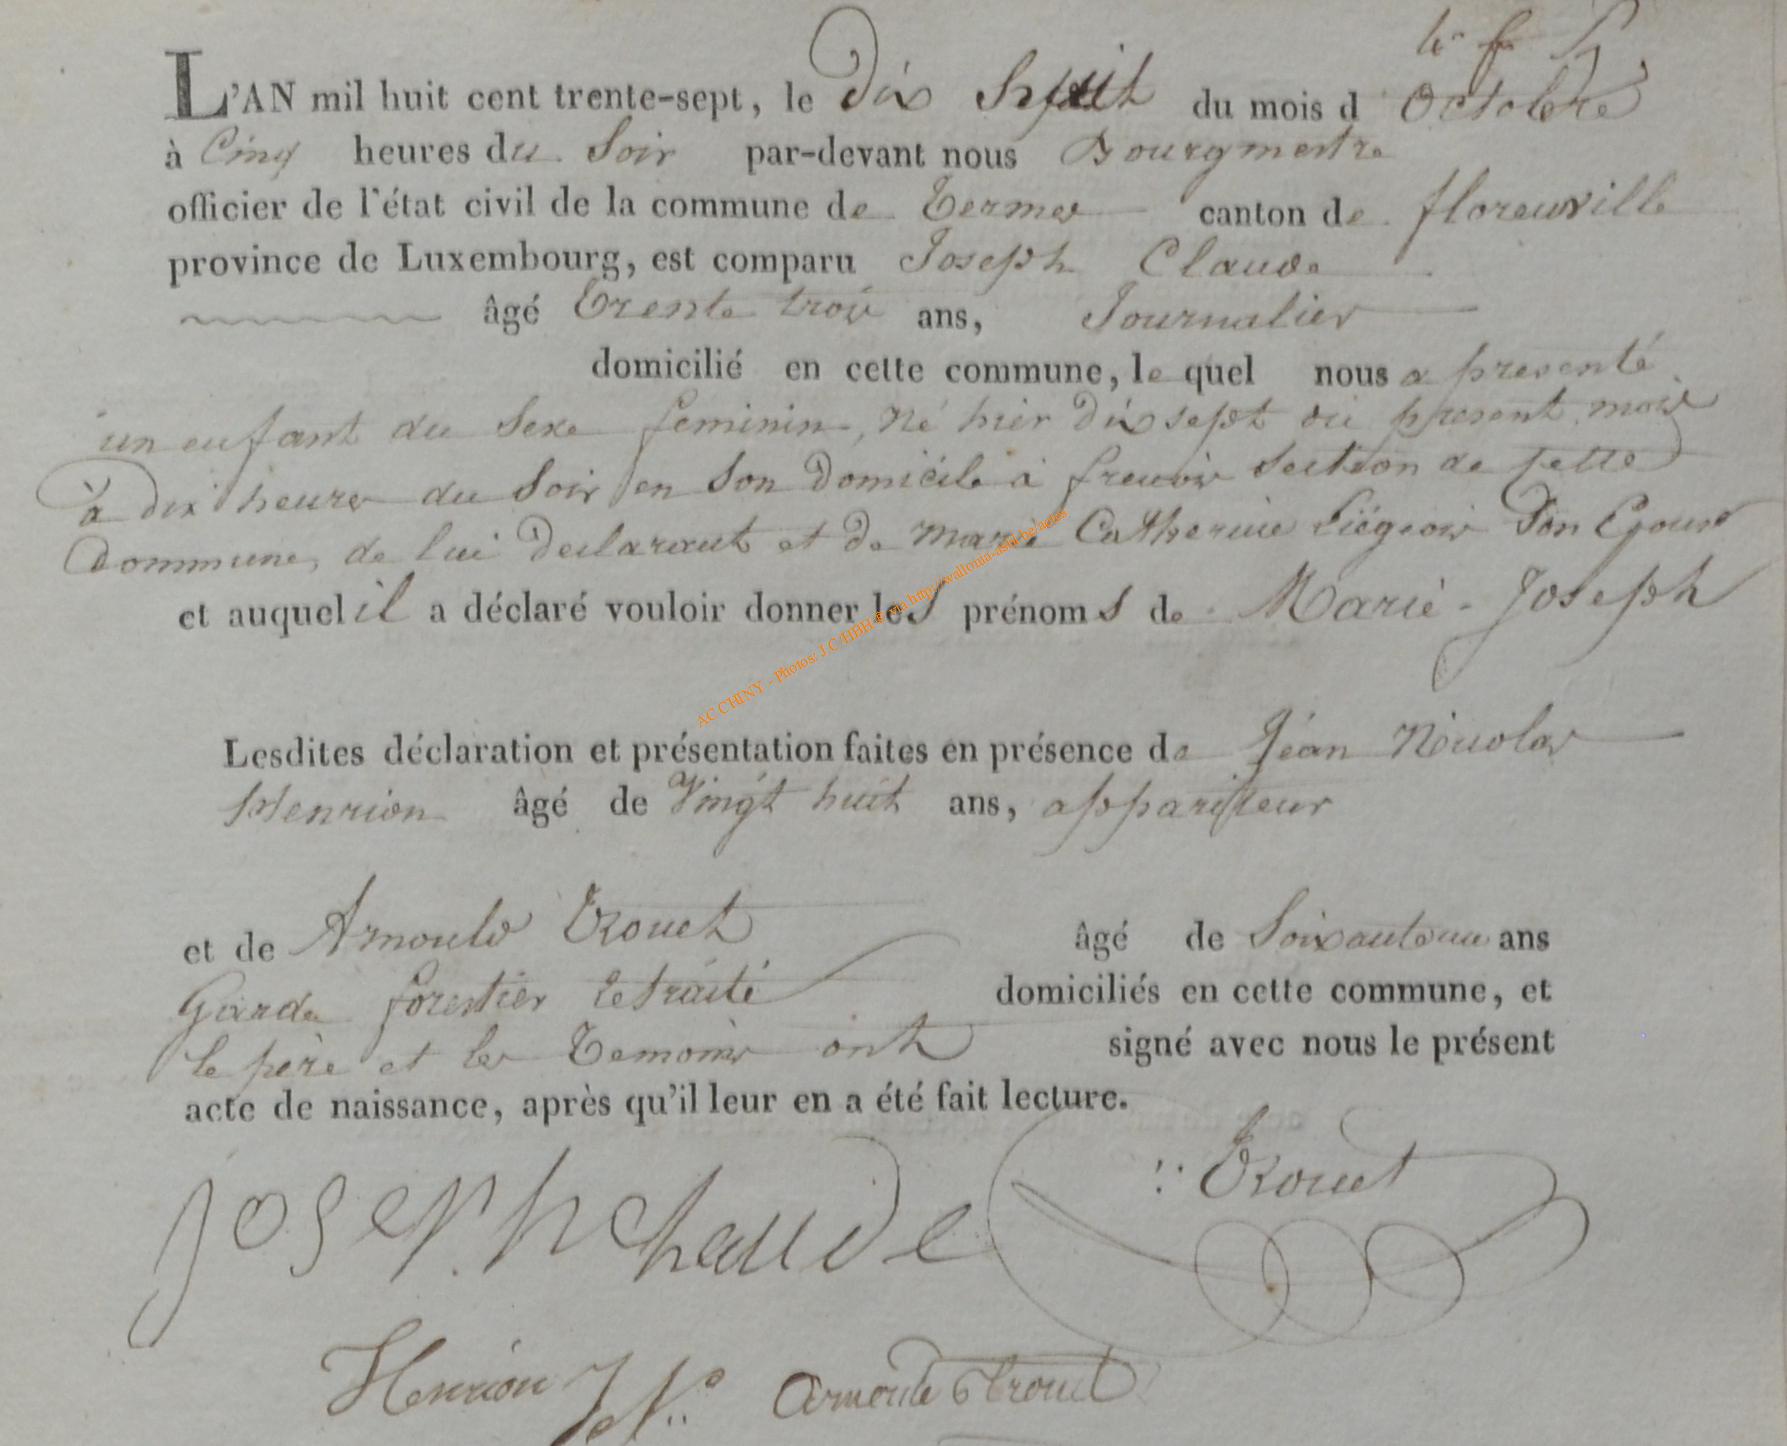 L'AN mil huit cent trente-sept, le dix huit du mois d Octobre
à Cinq heures du Soir par-devant nous Bourgmestre
officier de l'état civil de la commune de Termes canton de florenville
province de Luxembourg, est comparu Joseph Claude
âgé Trente trois ans, Journalier
domicilié en cette commune, le quel nous a presenté
un enfant du Sexe feminin, Né hier dix sept du present mois
à dix heures du Soir en Son Domicile à frenois Section de cette
Commune, de lui Declarant et de Marie Catherine Liégeois Son Epouse
et auquel il a déclaré vouloir donner les prénoms de Marie-Joseph
AC CHINY - Photos: J.C HBH © via http://wallonia-asbl.be/actes
Lesdites déclaration et présentation faites en présence de Jéan Nicolas
Henrion âgé de Vingt huit ans, appariteur
et de Arnould Trouet âgé de Soixanteun ans
Garde forestier retraité domiciliés en cette commune, et
le père et les Temoins ont signé avec nous le présent
acte de naissance, après qu'il leur en a été fait lecture.
Joseph Chaude
Trouet
Henrion J N
Arnould Trouet